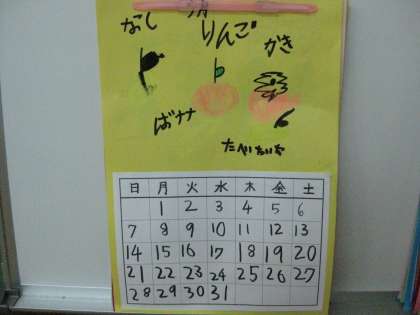 なし
りんご
かき
ばナナ
日 月 火 水 木 金 土
1 2 3 4 5 6
7 8 9 10 11 12 13
14 15 16 17 18 19 20
21 22 23 24 25 26 27
28 29 30 31